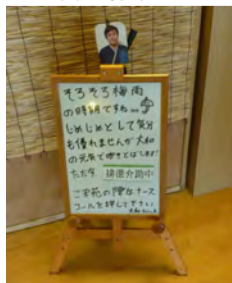 そろそろ梅雨
の時期ですね…
じめじめとして気分
も優れませんが大和
の元気で吹きとばします!
ただ今 排泄介助中
ご用の際はナース
コールを押して下さい